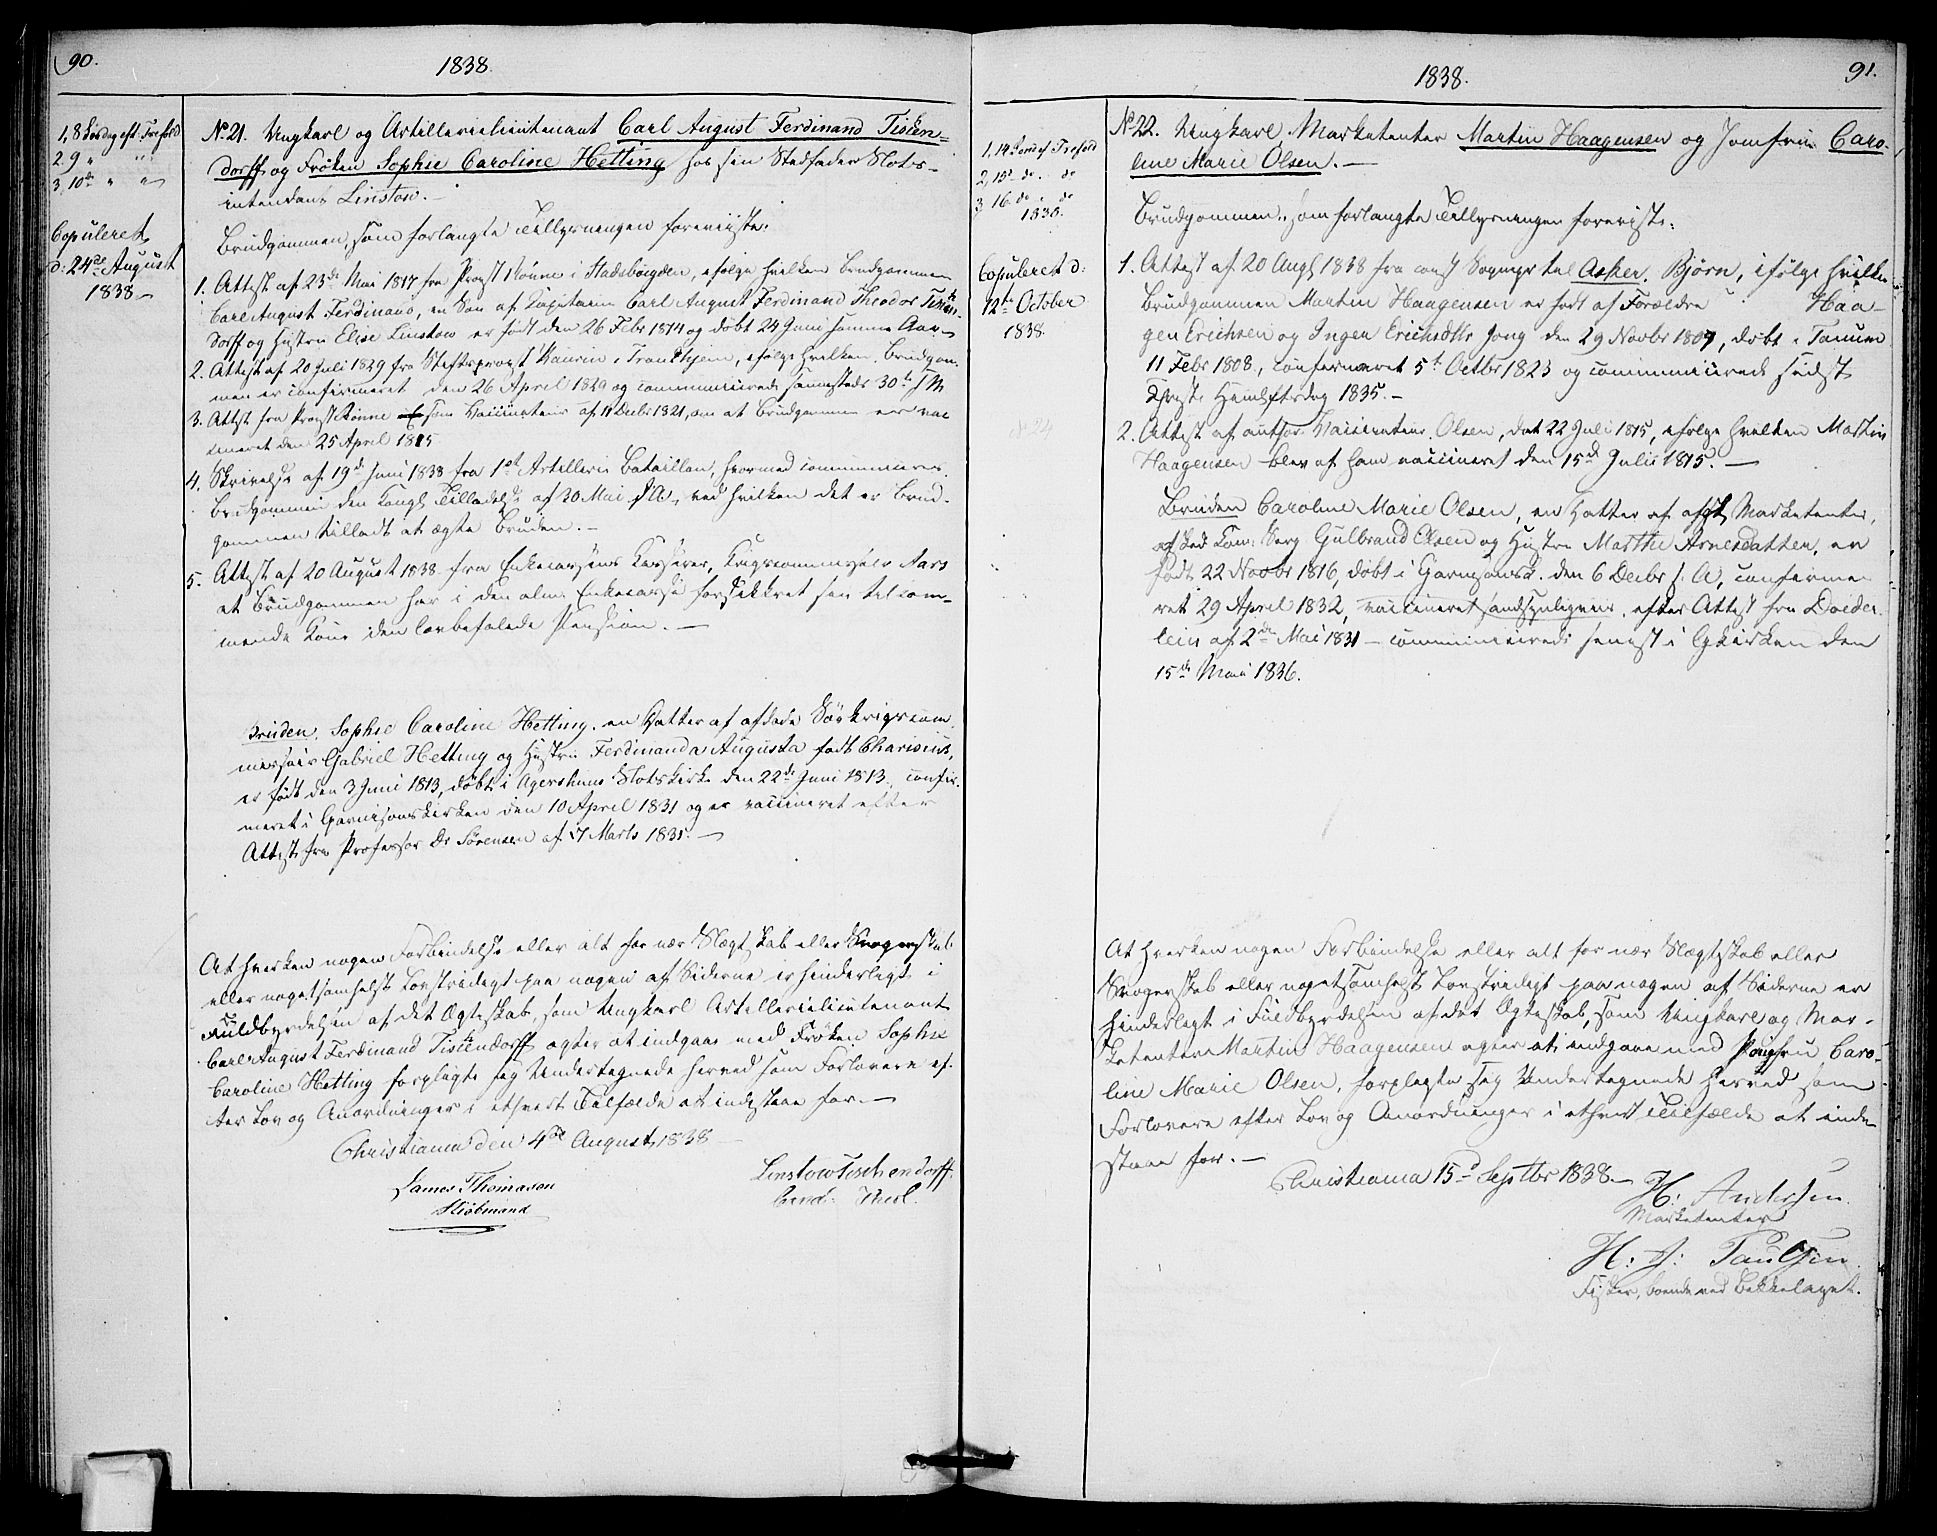 90.
1838.
1, 8 Søndag eft. Trefold
2. 9 " "
3, 10de " "
Copuleret
d: 24de August
1838
No 21. Ungkarl og Artillerielieutenant Carl August Ferdinand Tischen=
dorff og Frøken Sophie Caroline Hetting hos sin Stedfader Slots-
intendant Linstow.
Brudgommen, som forlangte Tillysningen foreviiste:
1. Attest af 23de Mai 1817 fra Provst Rønne i Stadsbøigden, ifølge hvilken Brudgommen
Carl August Ferdinand, en Søn af Capitaine Carl August Ferdinand Theodor Tischen-
dorff og Hustru Elise Linstow er født den 26 Febr 1814 og døbt 24 Juni samme Aar
2. Attest af 20 Juli 1829 fra Stiftsprovst i Trondhjem, ifølge hvilken Brudgom-
men er confirmeret den 26 April 1829 og communicerede sammesteds 30te s. M
3. Attest fra Provst Rønne som Vaccinateur af 11 Decbr 1821, om at Brudgommen er vac
cineret den 25 April 1815
4. Skrivelse af 19de Juni 1838 fra 1ste Artillerie Bataillon, hvormed communiceres
Brudgommen den Kongl Tilladelse af 30 Mai s. A, ved hvilken det er Brud-
gommen tilladt at ægte Bruden.
5. Attest af 20 August 1838 fra Enkecassens Casserer, Krigscommissair Aars
at Brudgommen har i den alm. Enkecasse forsikkret sin tilkom-
mende Kone den lovbefalede Pension.
Bruden. Sophie Caroline Hetting. en Datter af afdøde Søekrigscom
missair Gabriel Hetting og Hustru Ferdinanda Augusta født Charisius,
er født den 3 Juni 1813, døbt i Agershuus Slotskirke den 22de Juni 1813, confir-
meret i Garnisonskirken den 10 April 1831 og er vaccineret efter
Attest fra Professor Dr Sørensen af 7 Marts 1831.
At hverken nogen Forbindelse eller alt for nær Slægtskab eller Svogerskab
eller nogetsomhelst Lovstridigt paa nogen af Siderne er hinderligt i
Fuldbyrdelsen af det Ægteskab, som Ungkarl Artillerielieutenant
Carl August Ferdinand Tischendorff agter at indgaae med Frøken Sophie
Caroline Hetting forpligte sig Undertegnede herved som Forlovere ef-
ter Lov og Anordninger i ethvert Tilfælde at indestaae for.
Christiania den 4de August 1838
James Thomason
Kiøbmand
Linstow Tischendorff
1838.
91.
1, 14 Sønd ef. Trefold
2, 15 do. do
3 16. do. do
1838.
Copuleret d:
12te October
1838.
No 22. Ungkarl Marketenter Martin Haagensen og Jomfrue Caro-
line Marie Olsen.
Brudgommen, som forlangte Tillysningen foreviste:
1. Attest af 20 Augt 1838 fra const Sognepr til Asker. Bjørn, ifølge hvilken
Brudgommen Martin Haagensen er født af Forældre Haa-
gen Erichsen og Ingen Erichsdtr Jong den 29 Novbr 1807, døbt i Tanum
11 Febr 1808, confirmeret 5te Octbr 1823 og communicerede sidst
Christi Himlfartsdag 1835.
2. Attest af author. Vaccinateur Olsen, dat 22 Juli 1815, ifølge hvilken Martin
Haagensen blev af ham vaccineret den 15de Julii 1815.
Bruden Caroline Marie Olsen, en Datter af afgt Marketenter,
afsked Com: Serg Gulbrand Olsen og Hustru Marthe Arnesdatter, er
født 22 Novbr 1816, døbt i Garnisonsk. den 6 Decbr s. A, confirme
ret 29 April 1832, vaccineret sandsynligviis efter Attest fra Doeder
lein af 2de Mai 1831 - communicerede senest i Gkirken den
15de Mai 1836.
At hverken nogen Forbindelse eller alt for nær Slægtskab eller
Svogerskab eller nogetsomhelst Lovstridigt paa nogen af Siderne er
hinderligt i Fuldbyrdelsen af det Ægteskab, som Ungkarl og Mar-
ketenter Martin Haagensen agter at indgaae med Jomfru Caro-
line Marie Olsen, forpligte sig Undertegnede herved som
Forlovere efter Lov og Anordninger i ethvert Tilfælde at inde-
staae for.
Christiania 15de Septbr 1838
H: Andersen.
Marketenter
H: J: Paulsen.
Fisker, boende ved Bekkelaget.